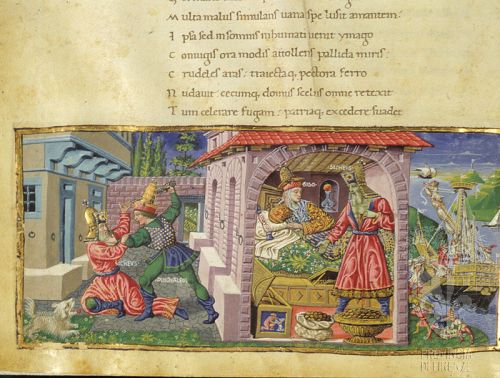 M ulta malus simulans uana spe lusit amantem
I psa sed in somnis inhumati uenit ymago
C oniugis ora modis attollens pallida miris:
C rudeles aras: traiectaq; pectora ferro
N udauit: cecumq; domus scelus omne retexit
T um celerare fugam: patriaq; excedere suadet
SICHEVS
DIDO
SICHEVS